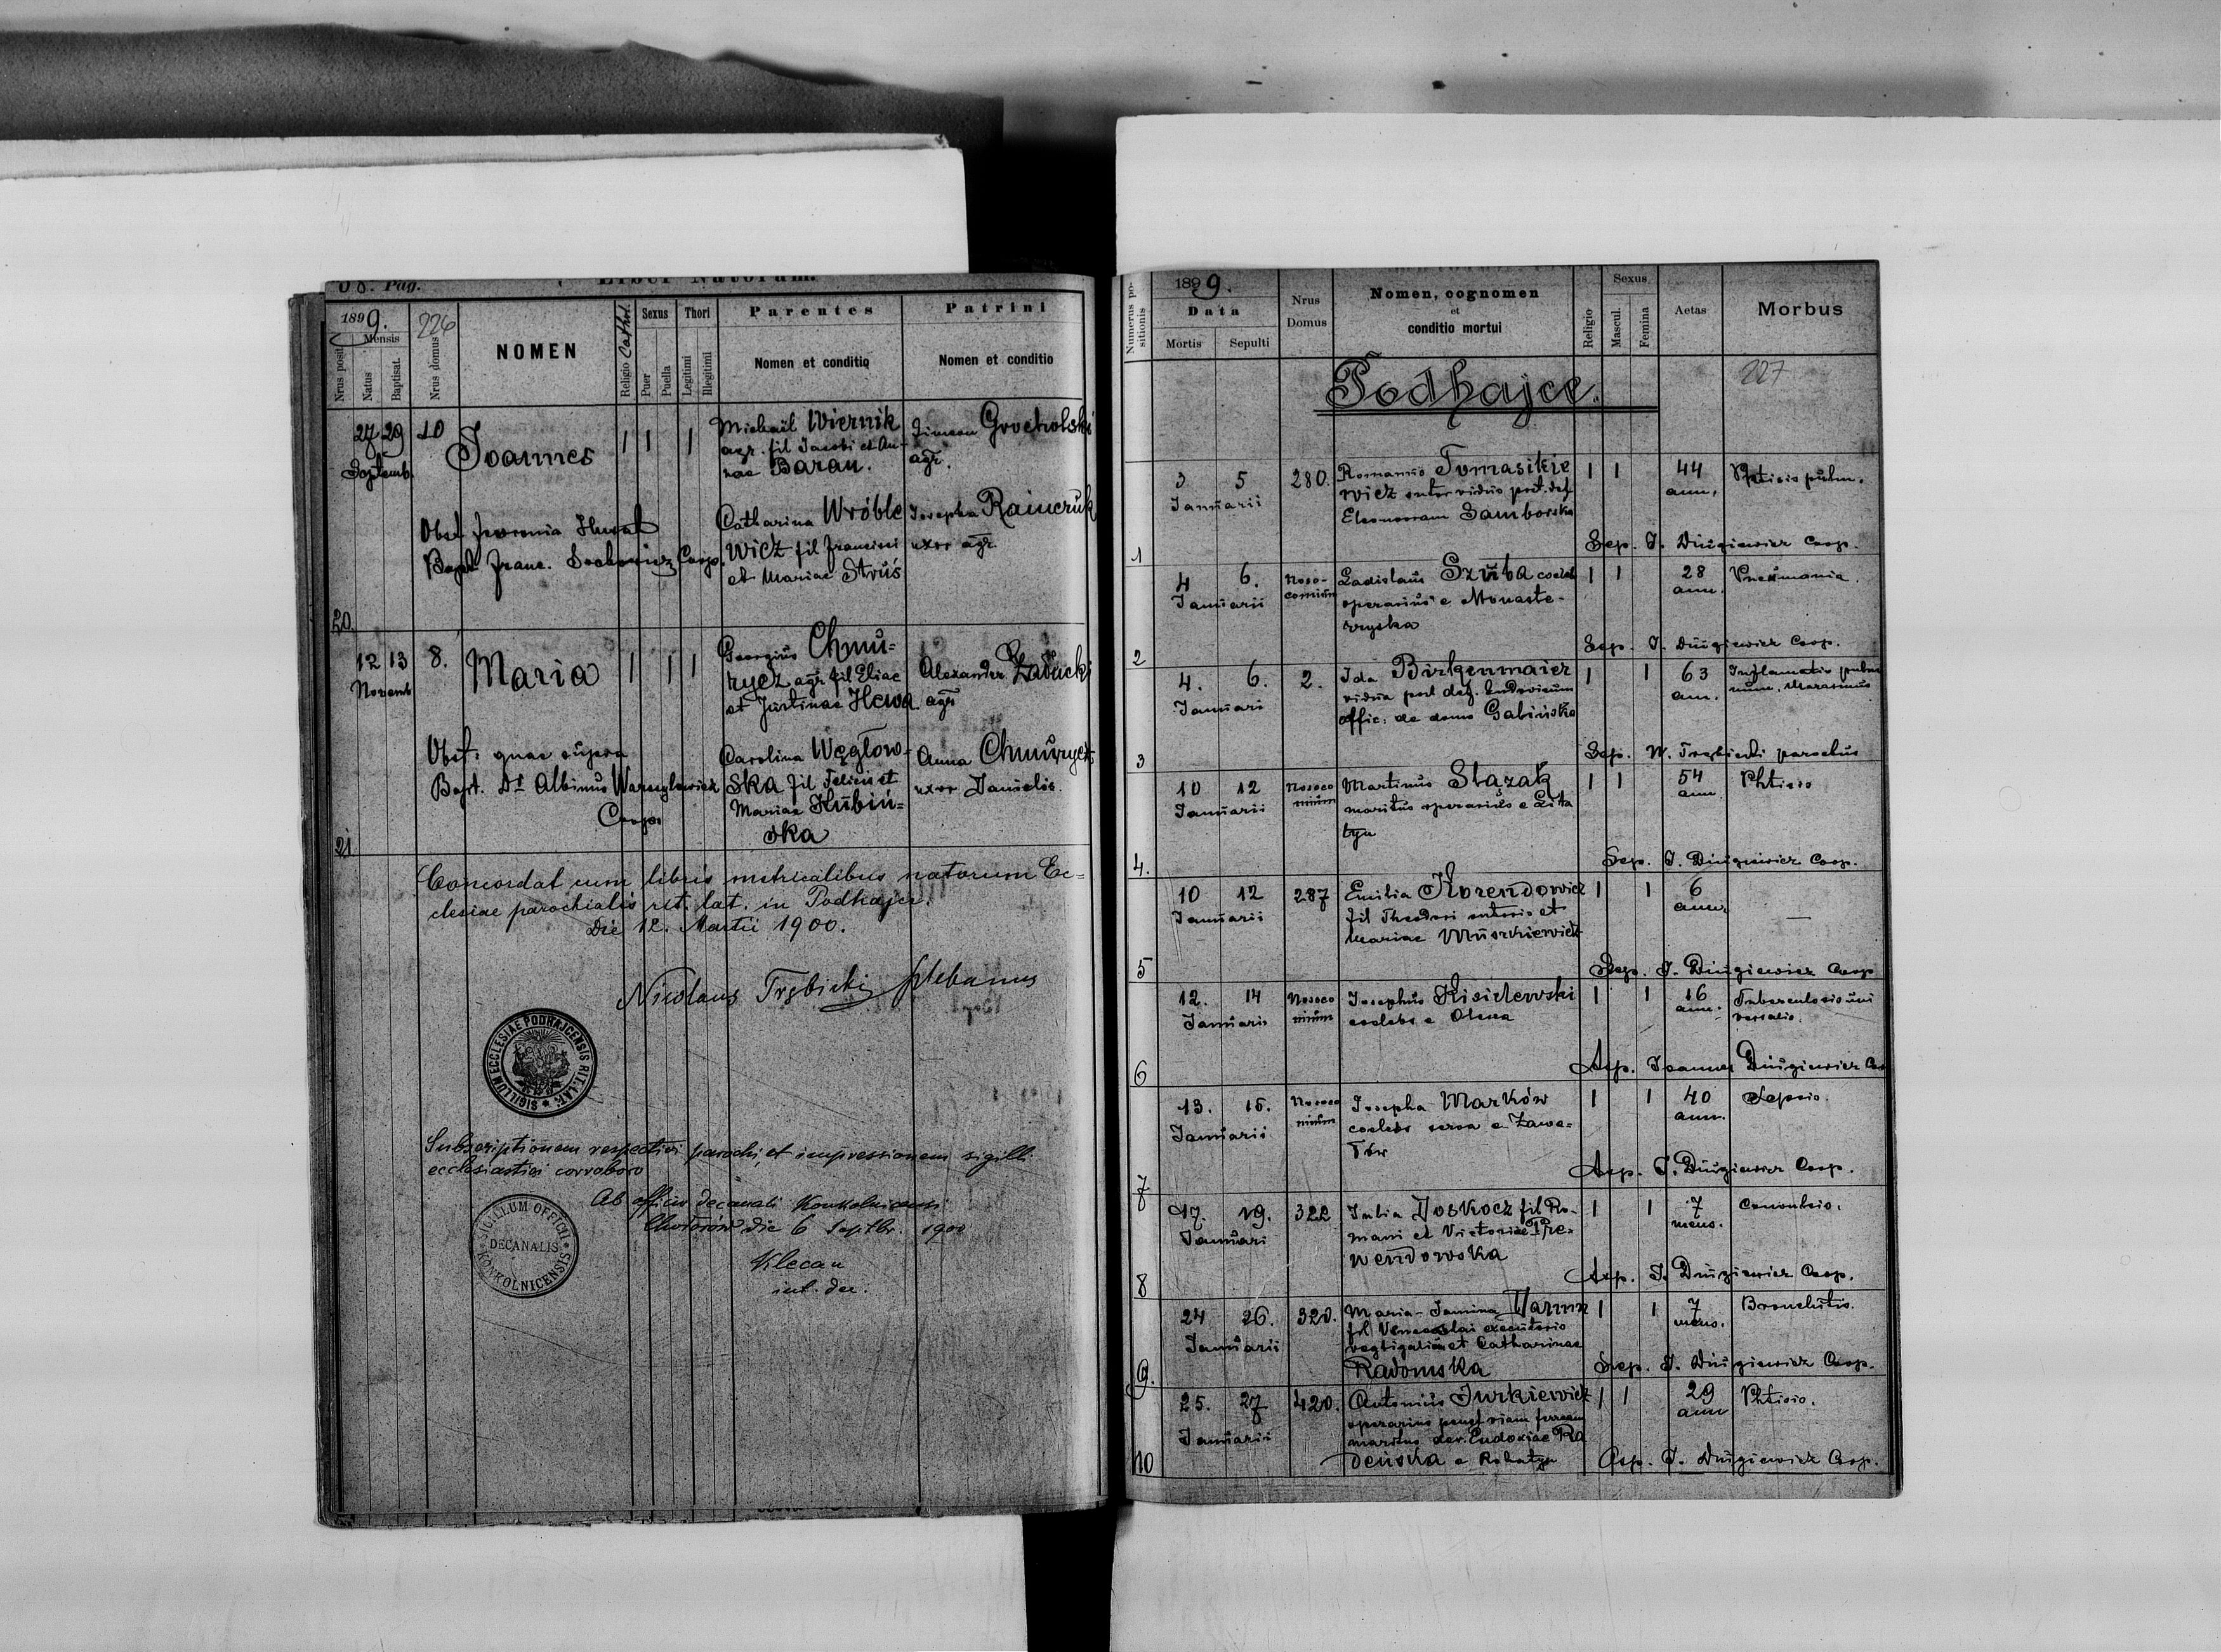 Pag.
Liber Natorum.
1899.
226
Mensis
Nrus posit.
Natus
Baptisat.
Nrus domus
NOMEN
Religio Cathol.
Sexus
Puer
Puella
Thori
Legitimi
Illegitimi
Parentes
Nomen et conditio
Patrini
Nomen et conditio
20
27 29
Septemb.
10
Joannes
1 1 1
Michaël Wiernik
agr. fil Jacobi et An-
nae Baran.
Catharina Wróble
wicz fil Francisci
et Mariae Strus
Simeon Grocholski
agr.
Josepha
uxor agr.
Obst
Bapt Franc. Coop.
21
12 13
Novemb
8.
Maria
1 1 1
Georgius Chmu-
rycz agr. fil Eliae
et Justinae Hewa
Carolina Węglow-
ska fil Felicis et
Mariae Hubiń-
ska
Alexander
agr
Anna Chmurycz
uxor Danielis.
Obst: quae supra
Bapt. Dr Albinus
Coop
Concordat cum libris metricalibus natorum Ec-
clesiae parochialis rit. lat. in Podhajce.
Die 12. Martii 1900.
Nicolaus Trębicki plebanus
SIGILLUM ECCLESIAE PODHAJCENSIS RIT. LAT.
Subscriptionem respectivi parochi, et impressionem sigilli
ecclesiastici corroboro
Ab officio decanali Konkolnicensi
Chodorów die 6 Septbr. 1900
Klecan
SIGILLUM OFFICI DECANALIS KONKOLNICENSIS
Numerus po-
sitionis
1899.
Data
Mortis
Sepulti
Nrus
Domus
Nomen, cognomen
et
conditio mortui
Religio
Sexus
Mascul.
Femina
Aetas
Morbus
Podhajce.
227
1
3 5
Januarii
280.
Romanus Tomasikie
wicz sutor viduus post. def
Eleonoram Samborska
1 1
44
ann.
Phtisis pulm.
Sep. J. Długiewicz Coop.
2
4 6.
Januarii
Noso-
comium
Ladislaus Szuba coeleb
operarius e Monaste-
rzyska
1 1
28
ann.
Pneumonia.
Sep. J. Długiewicz Coop.
3
4. 6.
Januari
2.
Ida Birkenmaier
vidua post def. Ludovicum
offic: de domo Gabińska
1 1
63
an.
Inflamatio pulmo
num, Marasmus
Sep. N. Trębicki parochus
4.
10 12
Januarii
Nosoco
mium
Martinus Stązak
maritus operarius e Lita
tyn
1 1
54
ann
Phtisis
Sep. J. Długiewicz Coop.
5
10 12
Januarii
287
Emilia Korendowicz
fil Theodori sutoris et
Mariae
1 1
6
ann.
—
Sep. J. Długiewicz Coop
6
12. 14
Januarii
Nosoco
mium
Josephus Kisielewski
coelebs e Olesza
1 1
16
ann.
Tuberculosis uni
versalis.
Sep. Joannes Długiewicz Coo
7
13. 15.
Januarii
Nosoco
mium
Josepha Marków
coelebs serva e Zawa-
łów
1 1
40
ann.
Sepsis.
Sep. J. Długiewicz Coop.
8
17. 19.
Januari
322
Julia Doskocz fil Ro-
mani et Victoriae Pre-
wendowska
1 1
7
mens.
Convulsio.
Sep. J. Długiewicz Coop.
9.
24 26.
Januarii
320.
Maria-Janina
fil Venceslai executoris
vegtigalium et Catharinae
Radomska
1 1
7
mens.
Bronchitis.
Sep. J. Długiewicz Coop.
10
25. 27
Januarii
420.
Antonius Jurkiewicz
operarius penes viam ferream
maritus der. Eudoxiae Ra
deńska e Rohatyn
1 1
29
ann
Phtisis.
Sep. J. Długiewicz Coop.